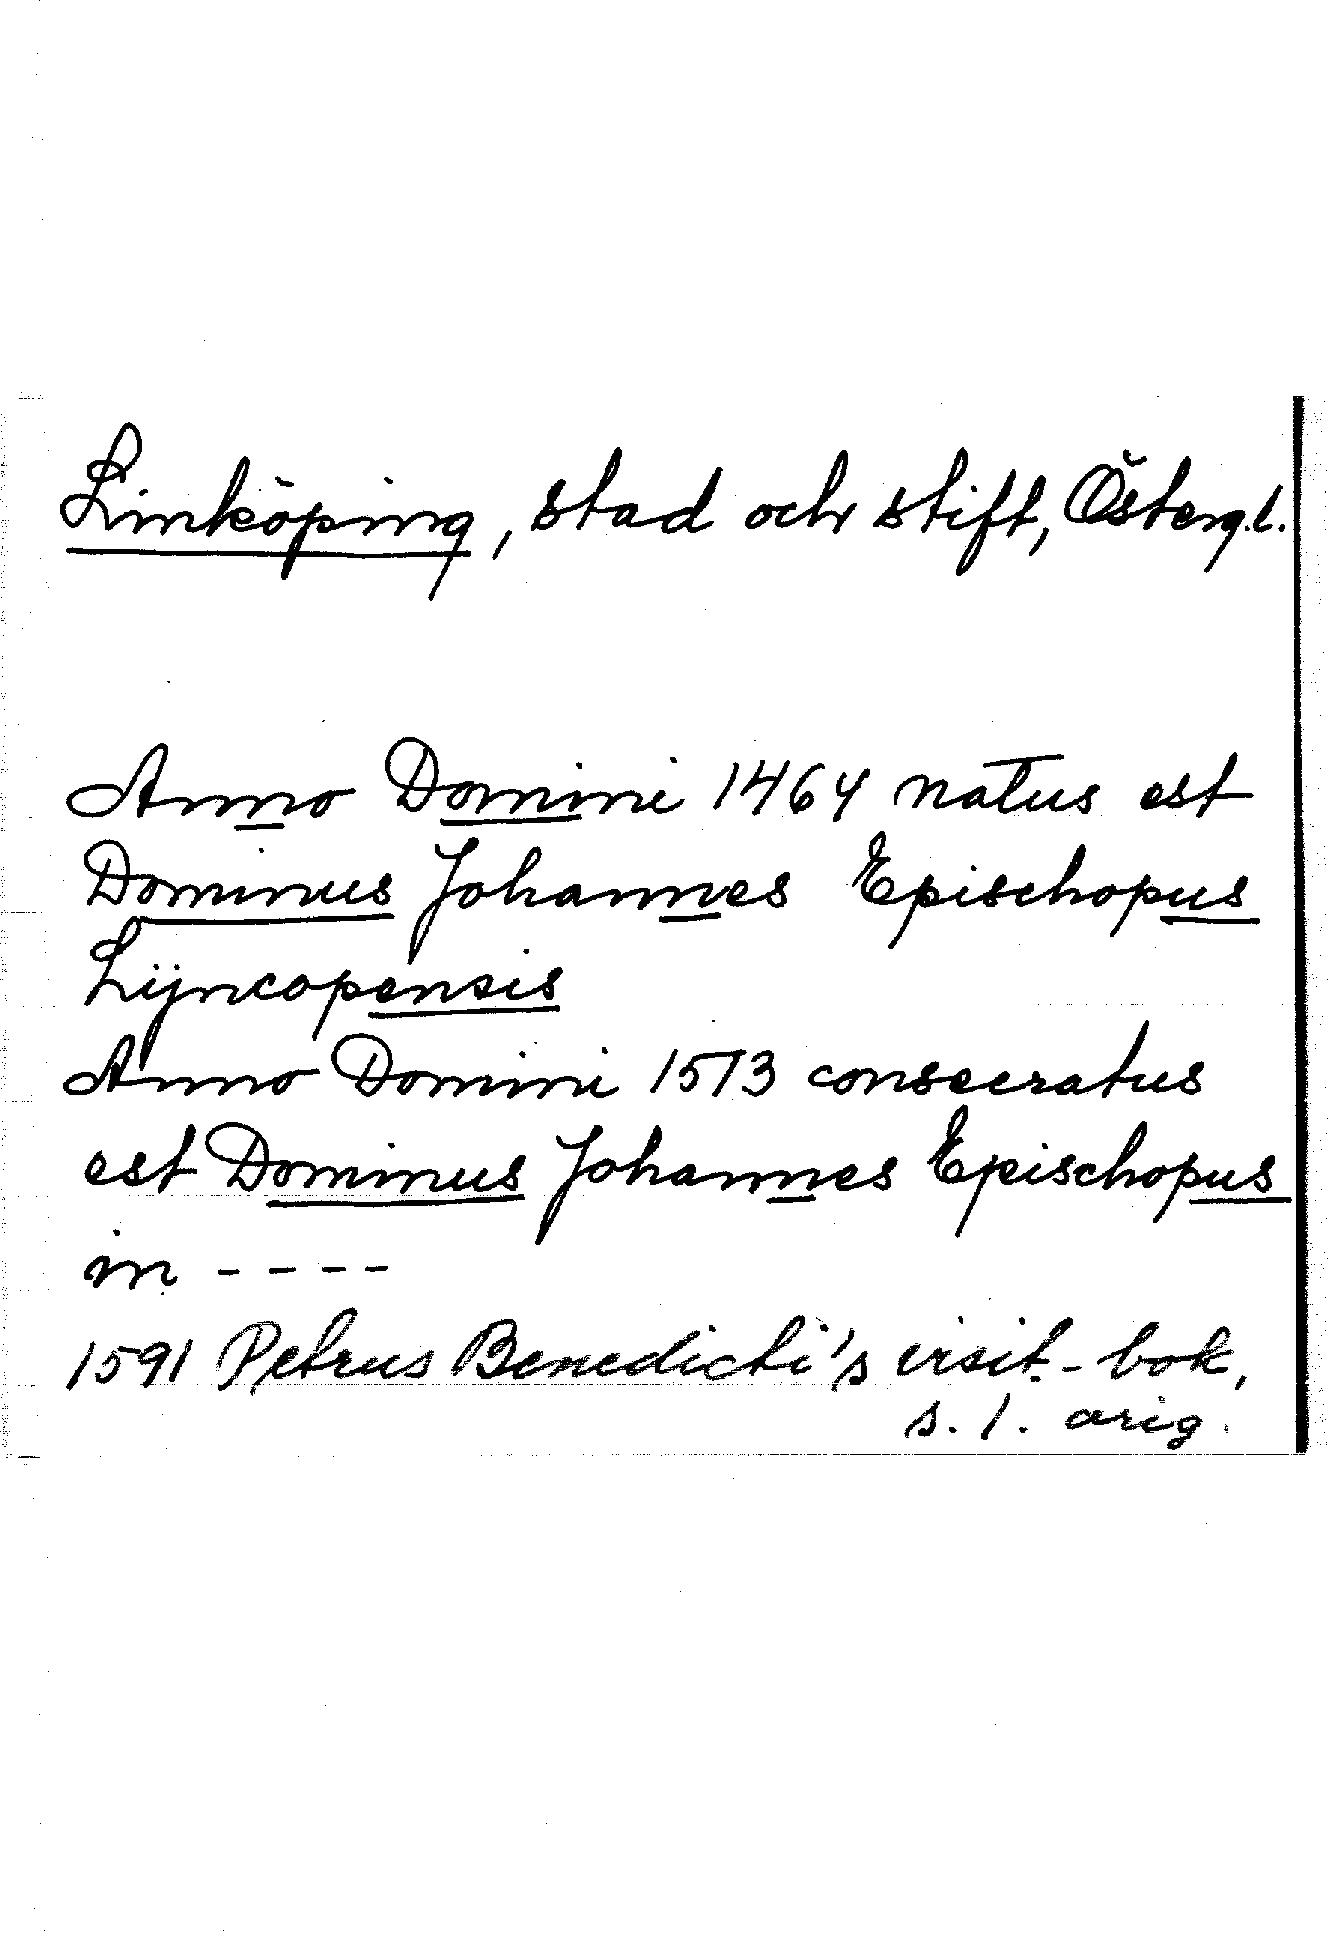 Linköping, stad och stift, Östergl.
Anno Domini 1464 natus est
Dominus Johannes Epischopus
Lijncopensis
Anno Domini 1513 consecratus
est Dominus Johannes Epischopus
in ----
1591 Petrus Benedicti's visit.-bok,
s. 1. orig.